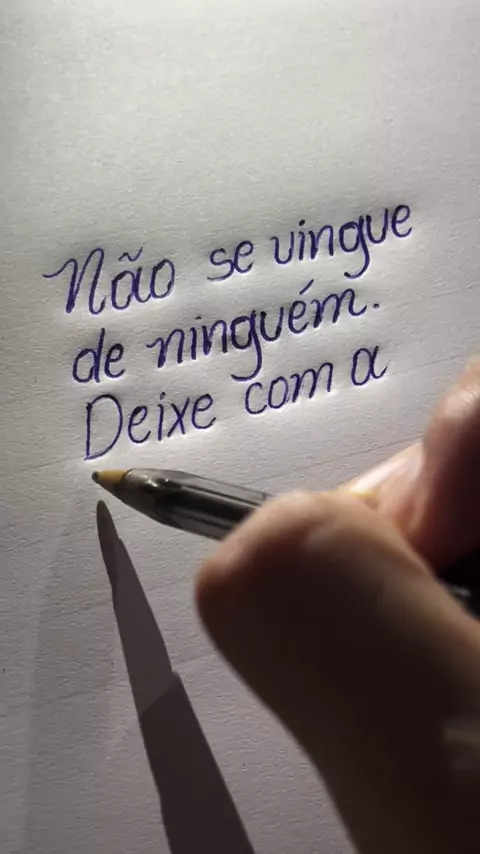 Não se vingue
de ninguém.
Deixe com a